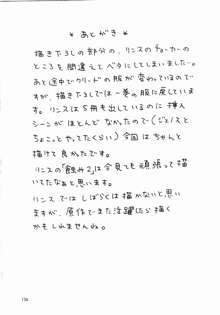 ＊ あとがき ＊
描き下ろしの部分の、リンスのチョーカーの
ところを間違えてベタにしてしまいました…。
あと途中でクリードの服が変わっているので
すが、描き下ろしでは一巻の服に戻しています。
リンスは5冊も出しているのに挿入
シーンがほとんどなかったので（ジェノスと
ちょこっとやってたくらい）今回はちゃんと
描けて良かったです。
リンスの「蝕み2」は今見ても頑張って描
いてたなぁと思います。
リンスではしばらくは描かないと思い
ますが、原作でまた活躍したら描く
かもしれませんね。